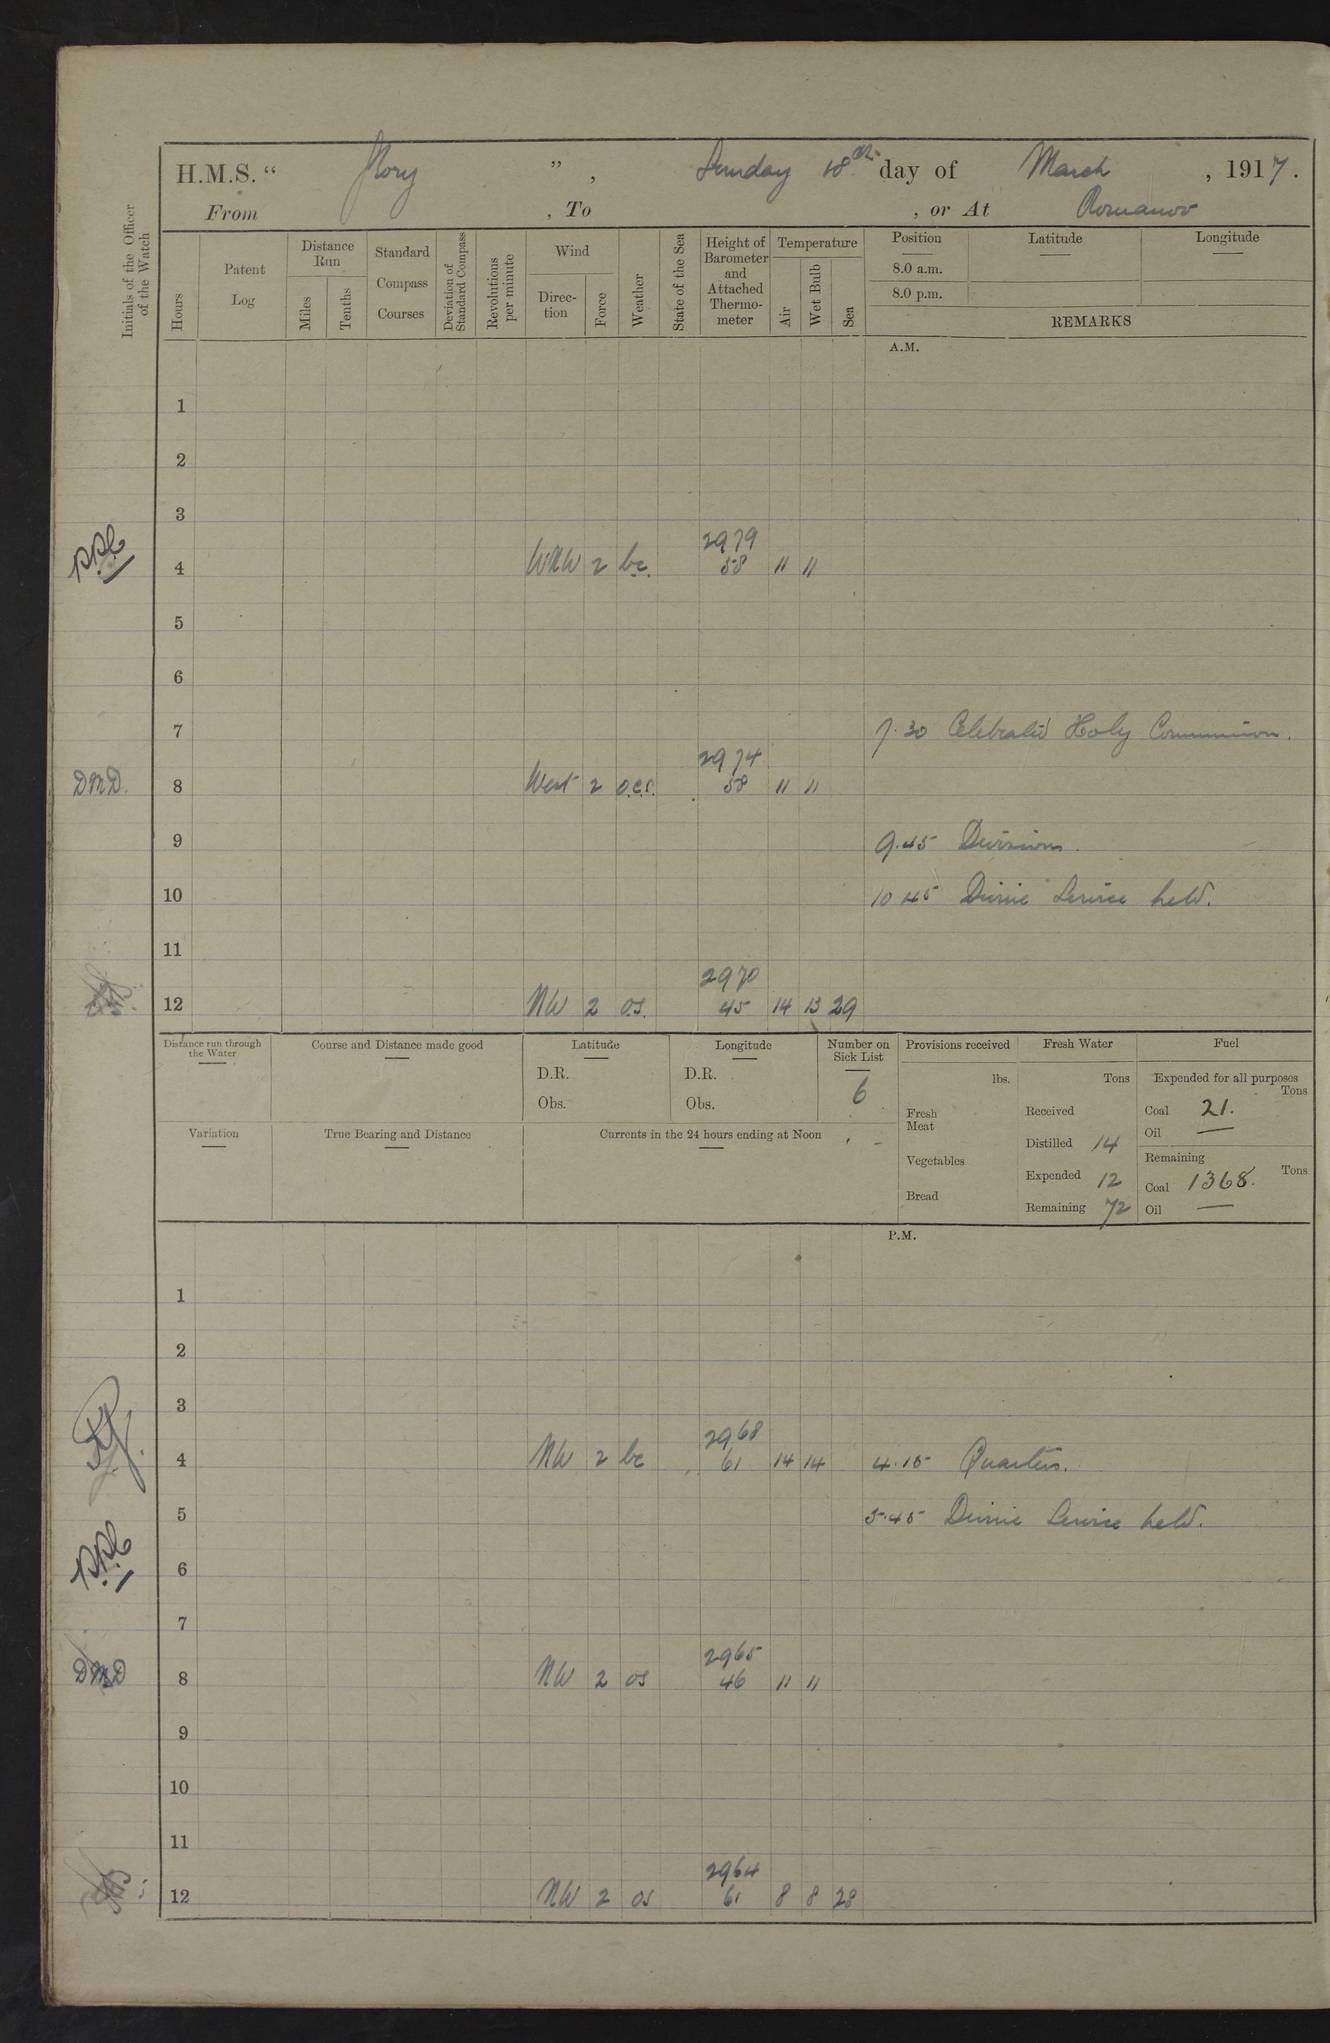 H.M.S. “ Glory ”, Sunday 18th day of March, 1917.
From , To , or At Romanov
Initials of the Officer of the Watch
Hours
Patent Log
Distance Run
Miles
Tenths
Standard Compass Courses
Deviation of Standard Compass
Revolutions per minute
Wind
Direction
Force
Weather
State of the Sea
Height of Barometer and Attached Thermometer
Temperature
Air
Wet Bulb
Sea
Position Latitude Longitude
8.0 a.m.
8.0 p.m.
REMARKS
A.M.
1
2
3
2979
4 WNW 2 bc. 58 11 11
5
6
7 7.30 Celebrated Holy Communion.
2974
DMD. 8 West 2 o.c.s. 58 11 11
9 9.45 Divisions.
10 10 45 Divine Service held.
11
2970
12 NW 2 o.s. 45 14 13 29
Distance run through the Water
Course and Distance made good
Latitude
D.R.
Obs.
Longitude
D.R.
Obs.
Number on Sick List
6
Variation
True Bearing and Distance
Currents in the 24 hours ending at Noon
Provisions received
lbs.
Fresh Meat
Vegetables
Bread
Fresh Water
Tons
Received
Distilled 14
Expended 12
Remaining 72
Fuel
Expended for all purposes
Tons
Coal 21.
Oil —
Remaining
Tons
Coal 1368.
Oil —
P.M.
1
2
3
2968
4 NW 2 bc 61 14 14 4.15 Quarters.
5 5.45 Divine Service held.
6
7
2965
DMD 8 NW 2 os 46 11 11
9
10
11
2964
12 NW 2 os 61 8 8 28